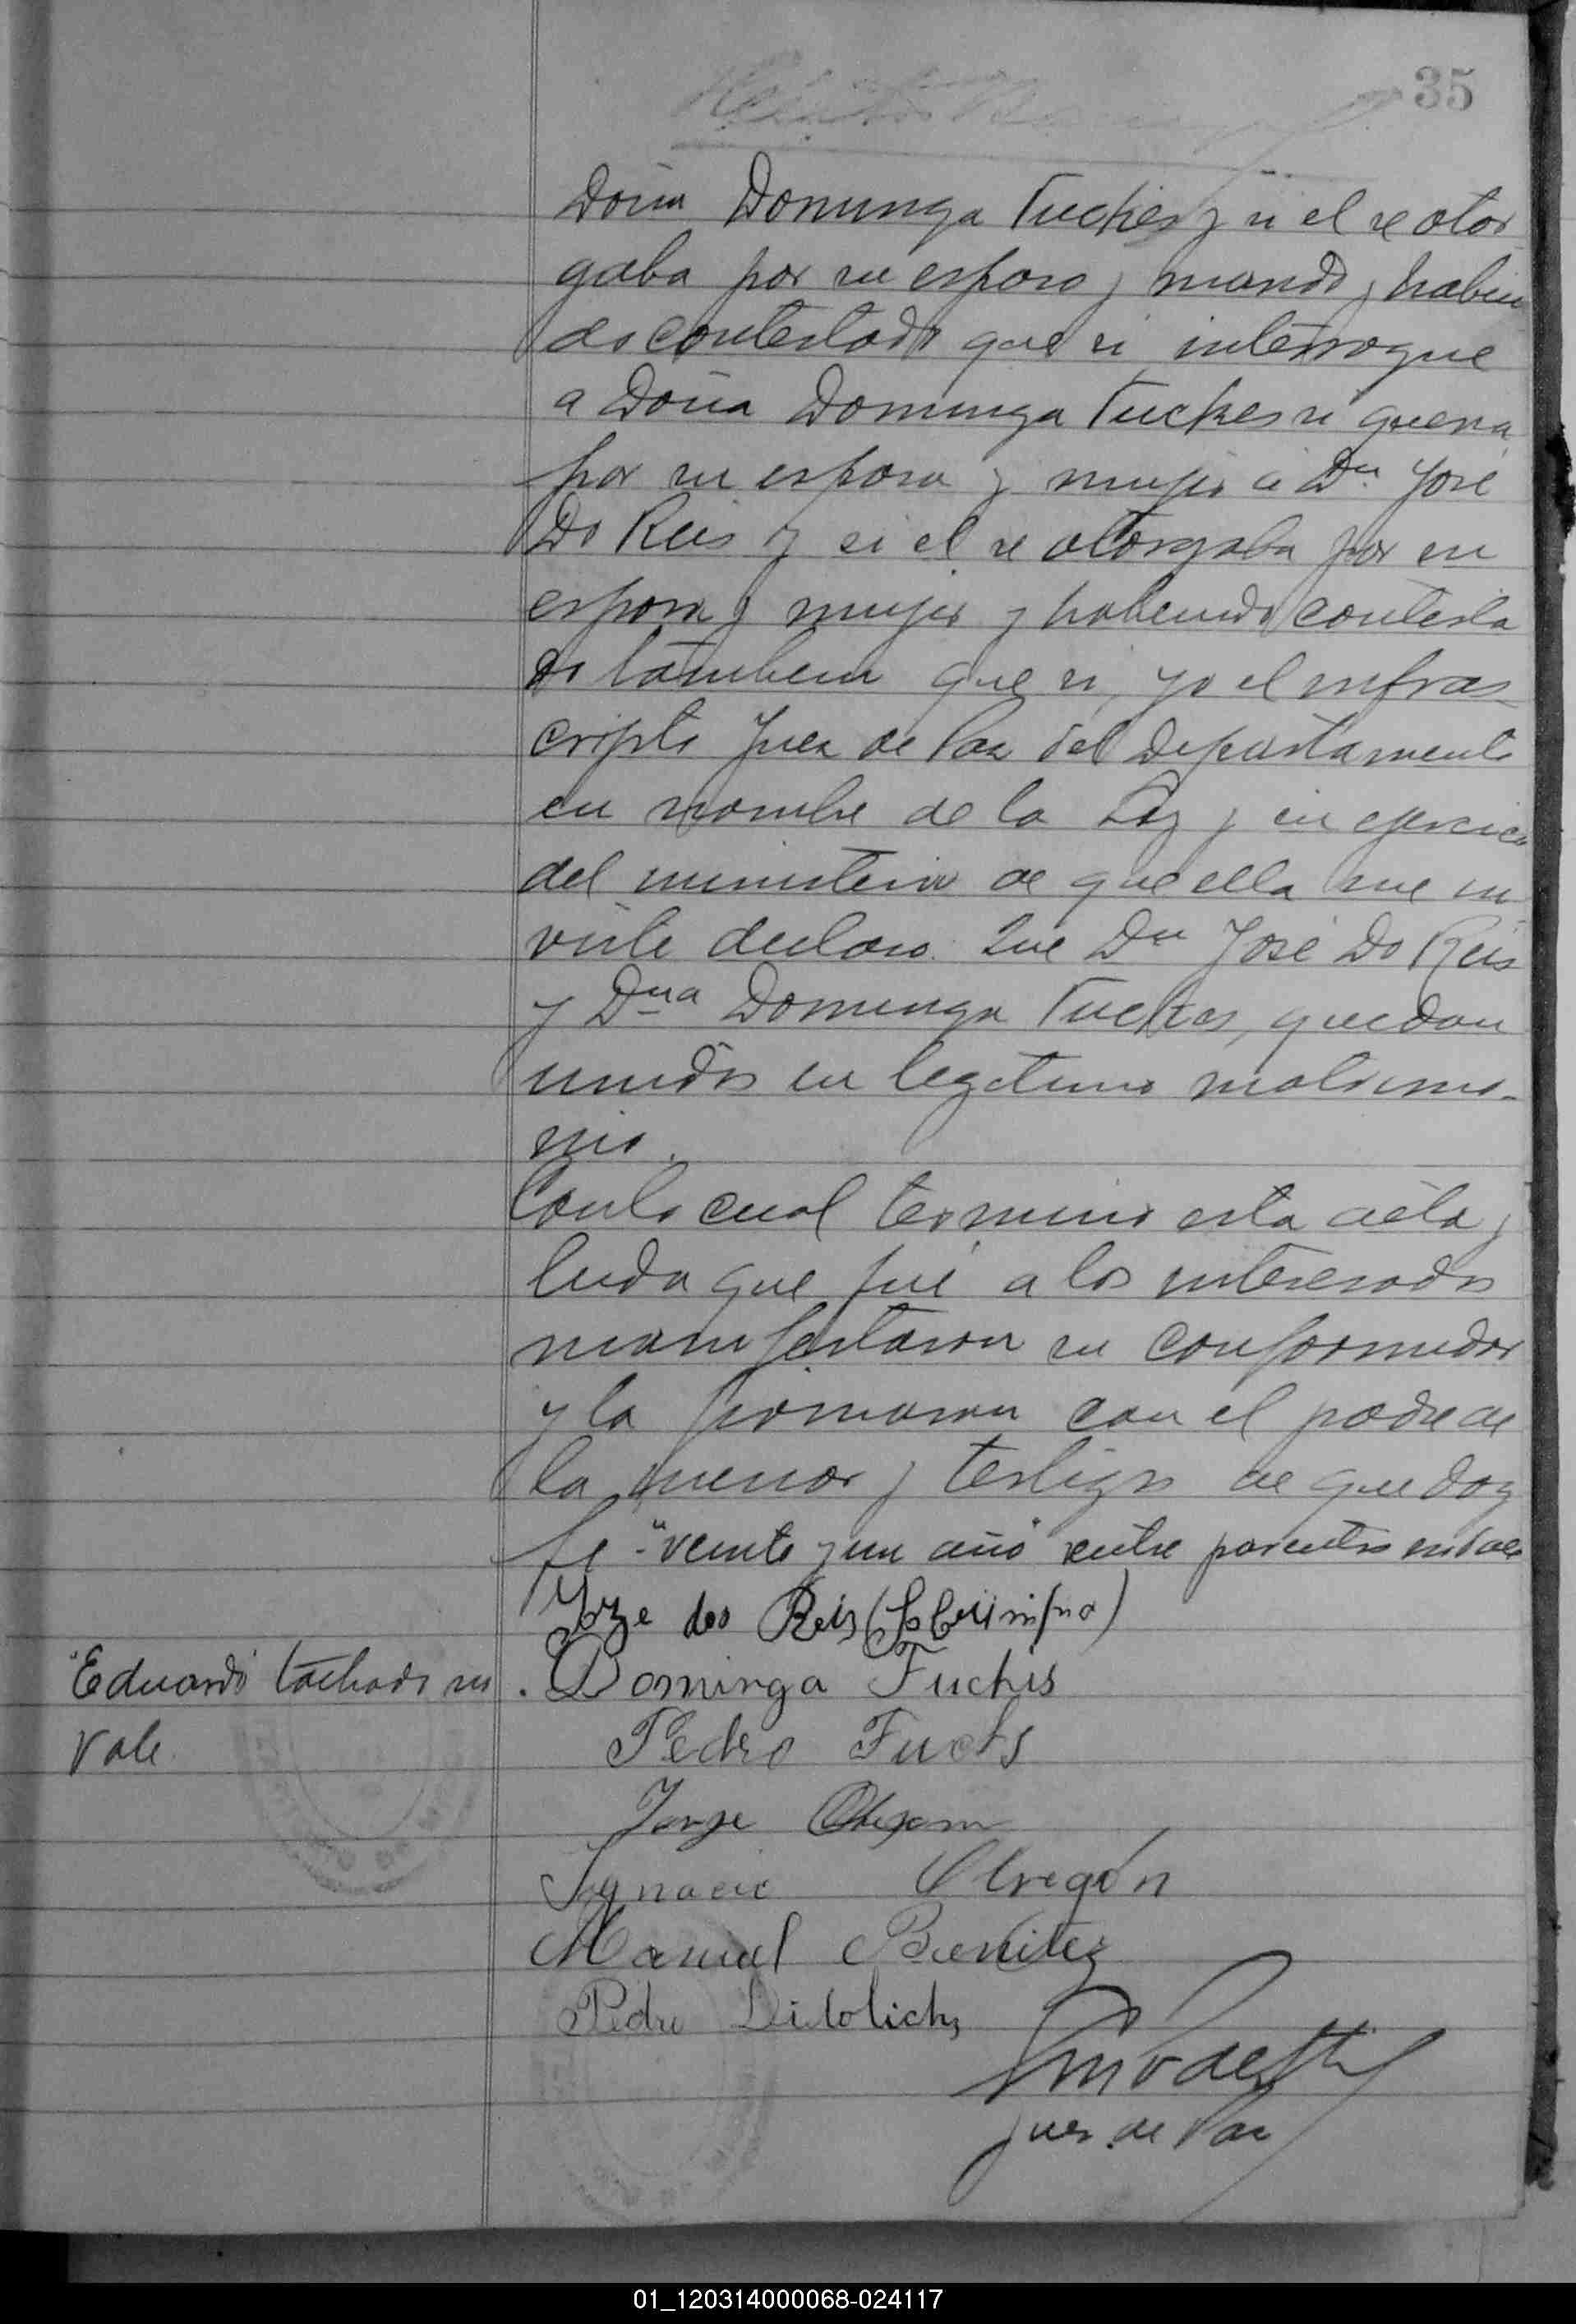 35
Doña Dominga Fuches y si el se otor
gaba por su esposo y marido y habien
do contestado que si interrogue
a Doña Dominga Fuches si queria
por su esposa y mujer a Dn José
Do Reis y si el se otorgaba por su
esposa y mujer y habiendo contesta
do tambien que si, yo el infras
cripto Juez de Paz del Departamento
en nombre de la Ley y en ejercicio
del ministerio de que ella me in
viste declaro: Que Dn José Do Reis
y Dna Dominga Fuches, quedan
unidos en legitimo matrimo-
nio.
Con lo cual termino esta acta y
leida que fué a los interesados
manifestaron su conformidad
y la firmaron con el padre de
la menor y testigos de que doy
fe - "veinte y un año" entre parentesis no vale
Jorze dos Reis
"Eduardo" tachado no
Vale.
Dominga Fuchs
Pedro Fuchs
Jorge
Ygnacio Obregón
Manuel Benitez
Pedro
Juez de Paz
01_120314000068-024117